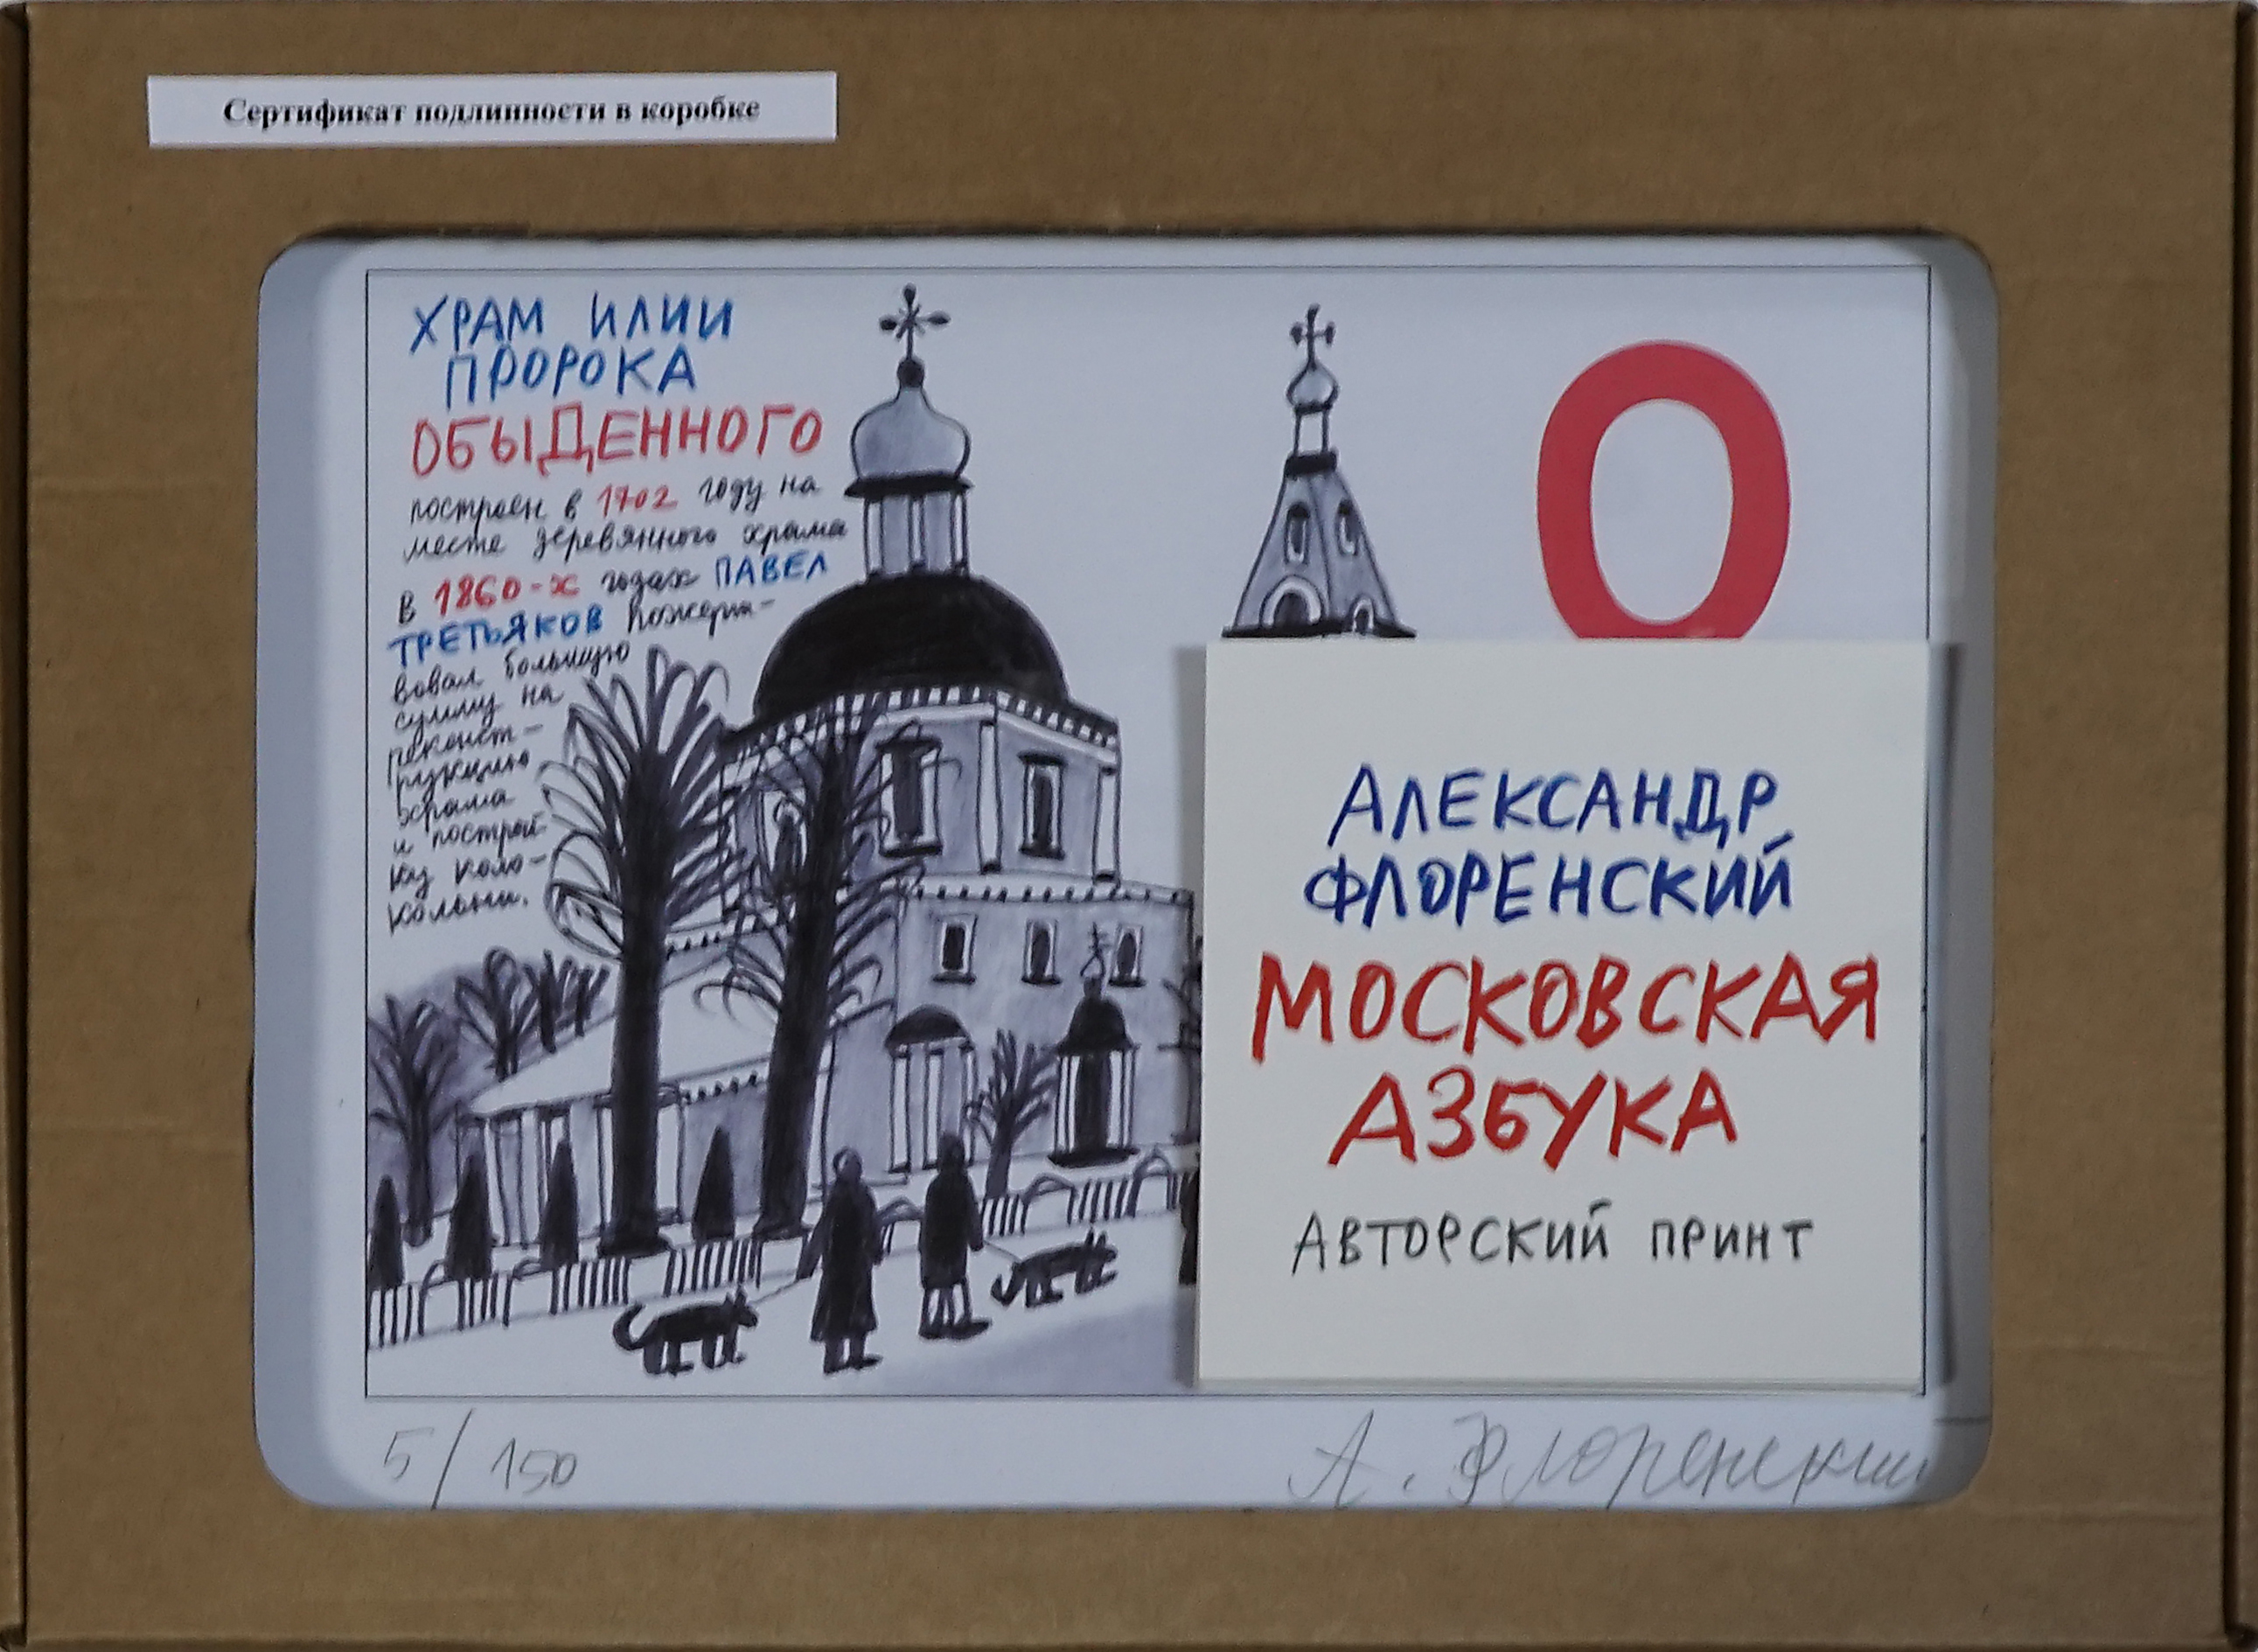 Сертификат подлинности в коробке
ХРАМ ИЛИИ
ПРОРОКА
ОБЫДЕННОГО
построен в 1702 году на
месте деревянного храма
В 1860-х годах ПАВЕЛ
ТРЕТЬЯКОВ пожерт-
вовал большую
сумму на
реконст-
рукцию
храма
и построй
ку коло-
кольни.
О
АЛЕКСАНДР
ФЛОРЕНСКИЙ
МОСКОВСКАЯ
АЗБУКА
АВТОРСКИЙ ПРИНТ
5/150
А. Флоренский